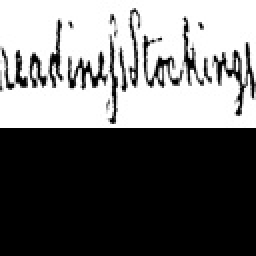 readineſs Stockings